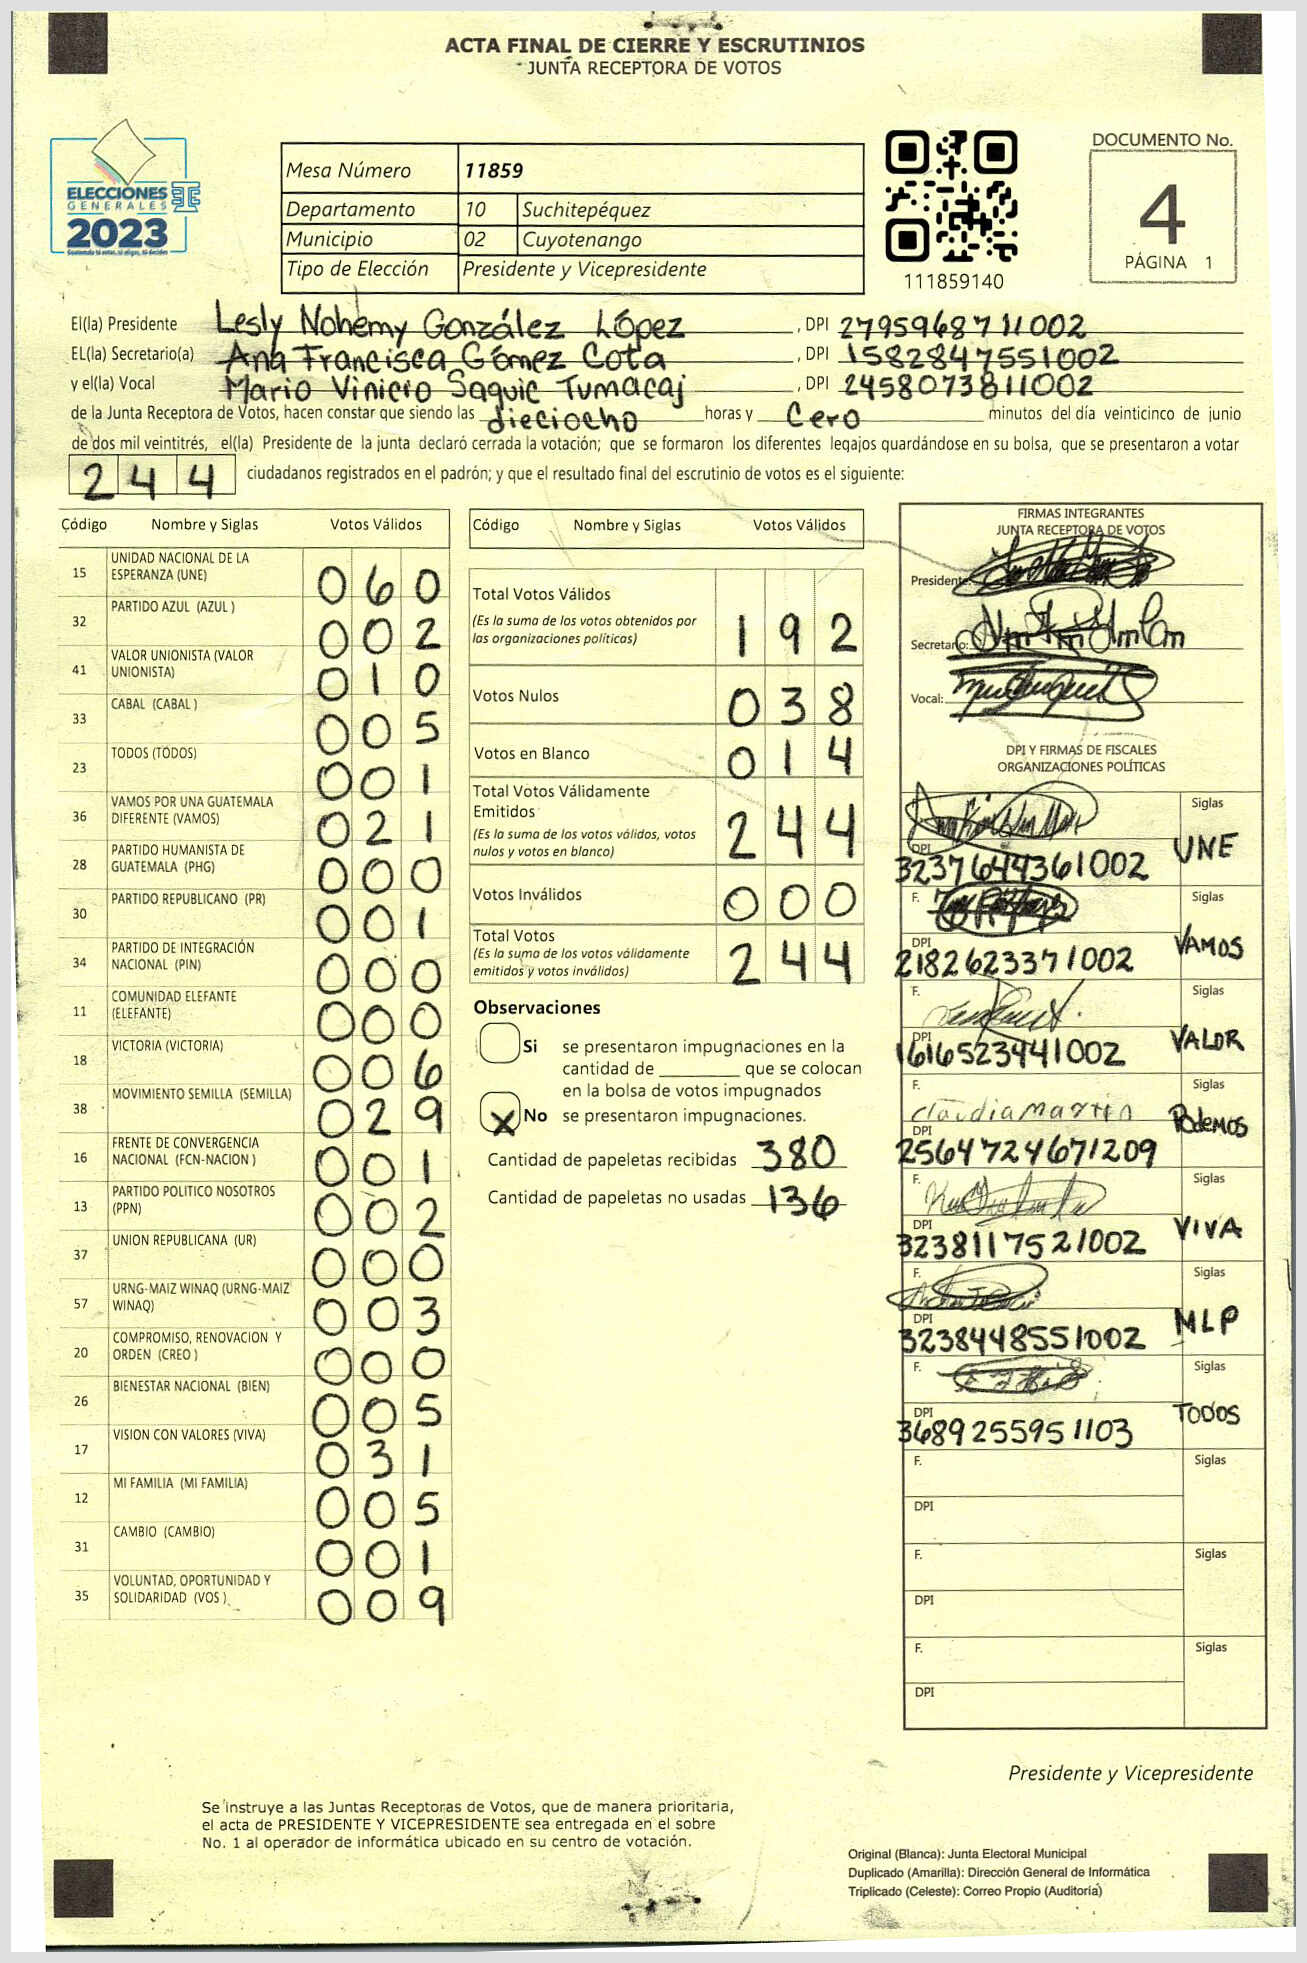 ACTA FINAL DE CIERRE Y ESCRUTINIOS
JUNTA RECEPTORA DE VOTOS
ELECCIONES
GENERALES
2023
Mesa Número 11859
Departamento 10 Suchitepéquez
Municipio 02 Cuyotenango
Tipo de Elección Presidente y Vicepresidente
111859140
DOCUMENTO No.
4
PÁGINA 1
El(la) Presidente Lesly Nohemy González López , DPI 2795968711002
EL(la) Secretario(a) Ana Francisca Gómez Cota , DPI 1582847551002
y el(la) Vocal Mario Vinicio Saquic Tumacaj , DPI 2458073811002
de la Junta Receptora de Votos, hacen constar que siendo las dieciocho horas y Cero minutos del día veinticinco de junio
de dos mil veintitrés, el(la) Presidente de la junta declaró cerrada la votación; que se formaron los diferentes legajos guardándose en su bolsa, que se presentaron a votar
244 ciudadanos registrados en el padrón; y que el resultado final del escrutinio de votos es el siguiente:
Código Nombre y Siglas Votos Válidos
15 UNIDAD NACIONAL DE LA ESPERANZA (UNE) 060
32 PARTIDO AZUL (AZUL ) 002
41 VALOR UNIONISTA (VALOR UNIONISTA) 010
33 CABAL (CABAL ) 005
23 TODOS (TODOS) 001
36 VAMOS POR UNA GUATEMALA DIFERENTE (VAMOS) 021
28 PARTIDO HUMANISTA DE GUATEMALA (PHG) 000
30 PARTIDO REPUBLICANO (PR) 001
34 PARTIDO DE INTEGRACIÓN NACIONAL (PIN) 000
11 COMUNIDAD ELEFANTE (ELEFANTE) 000
18 VICTORIA (VICTORIA) 006
38 MOVIMIENTO SEMILLA (SEMILLA) 029
16 FRENTE DE CONVERGENCIA NACIONAL (FCN-NACION ) 001
13 PARTIDO POLITICO NOSOTROS (PPN) 002
37 UNION REPUBLICANA (UR) 000
57 URNG-MAIZ WINAQ (URNG-MAIZ WINAQ) 003
20 COMPROMISO, RENOVACION Y ORDEN (CREO ) 000
26 BIENESTAR NACIONAL (BIEN) 005
17 VISION CON VALORES (VIVA) 031
12 MI FAMILIA (MI FAMILIA) 005
31 CAMBIO (CAMBIO) 001
35 VOLUNTAD, OPORTUNIDAD Y SOLIDARIDAD (VOS ) 009
Código Nombre y Siglas Votos Válidos
Total Votos Válidos 192
(Es la suma de los votos obtenidos por
las organizaciones políticas)
Votos Nulos 038
Votos en Blanco 014
Total Votos Válidamente
Emitidos 244
(Es la suma de los votos válidos, votos
nulos y votos en blanco)
Votos Inválidos 000
Total Votos 244
(Es la suma de los votos válidamente
emitidos y votos inválidos)
Observaciones
Si se presentaron impugnaciones en la
cantidad de ________ que se colocan
en la bolsa de votos impugnados
X No se presentaron impugnaciones.
Cantidad de papeletas recibidas 380
Cantidad de papeletas no usadas 136
FIRMAS INTEGRANTES
JUNTA RECEPTORA DE VOTOS
Presidente:
Secretario:
Vocal:
DPI Y FIRMAS DE FISCALES
ORGANIZACIONES POLÍTICAS
Siglas
DPI
3237644361002 UNE
F. Siglas
DPI
2182623371002 VAMOS
F. Siglas
DPI
1616523441002 VALOR
F. Siglas
claudia martin
DPI
2564724671209 PodeMOS
F. Siglas
DPI
3238117521002 VIVA
F. Siglas
DPI
3238448551002 MLP
F. Siglas
DPI
3689255951103 TODOS
F. Siglas
DPI
F. Siglas
DPI
F. Siglas
DPI
Presidente y Vicepresidente
Se instruye a las Juntas Receptoras de Votos, que de manera prioritaria,
el acta de PRESIDENTE Y VICEPRESIDENTE sea entregada en el sobre
No. 1 al operador de informática ubicado en su centro de votación.
Original (Blanca): Junta Electoral Municipal
Duplicado (Amarilla): Dirección General de Informática
Triplicado (Celeste): Correo Propio (Auditoría)